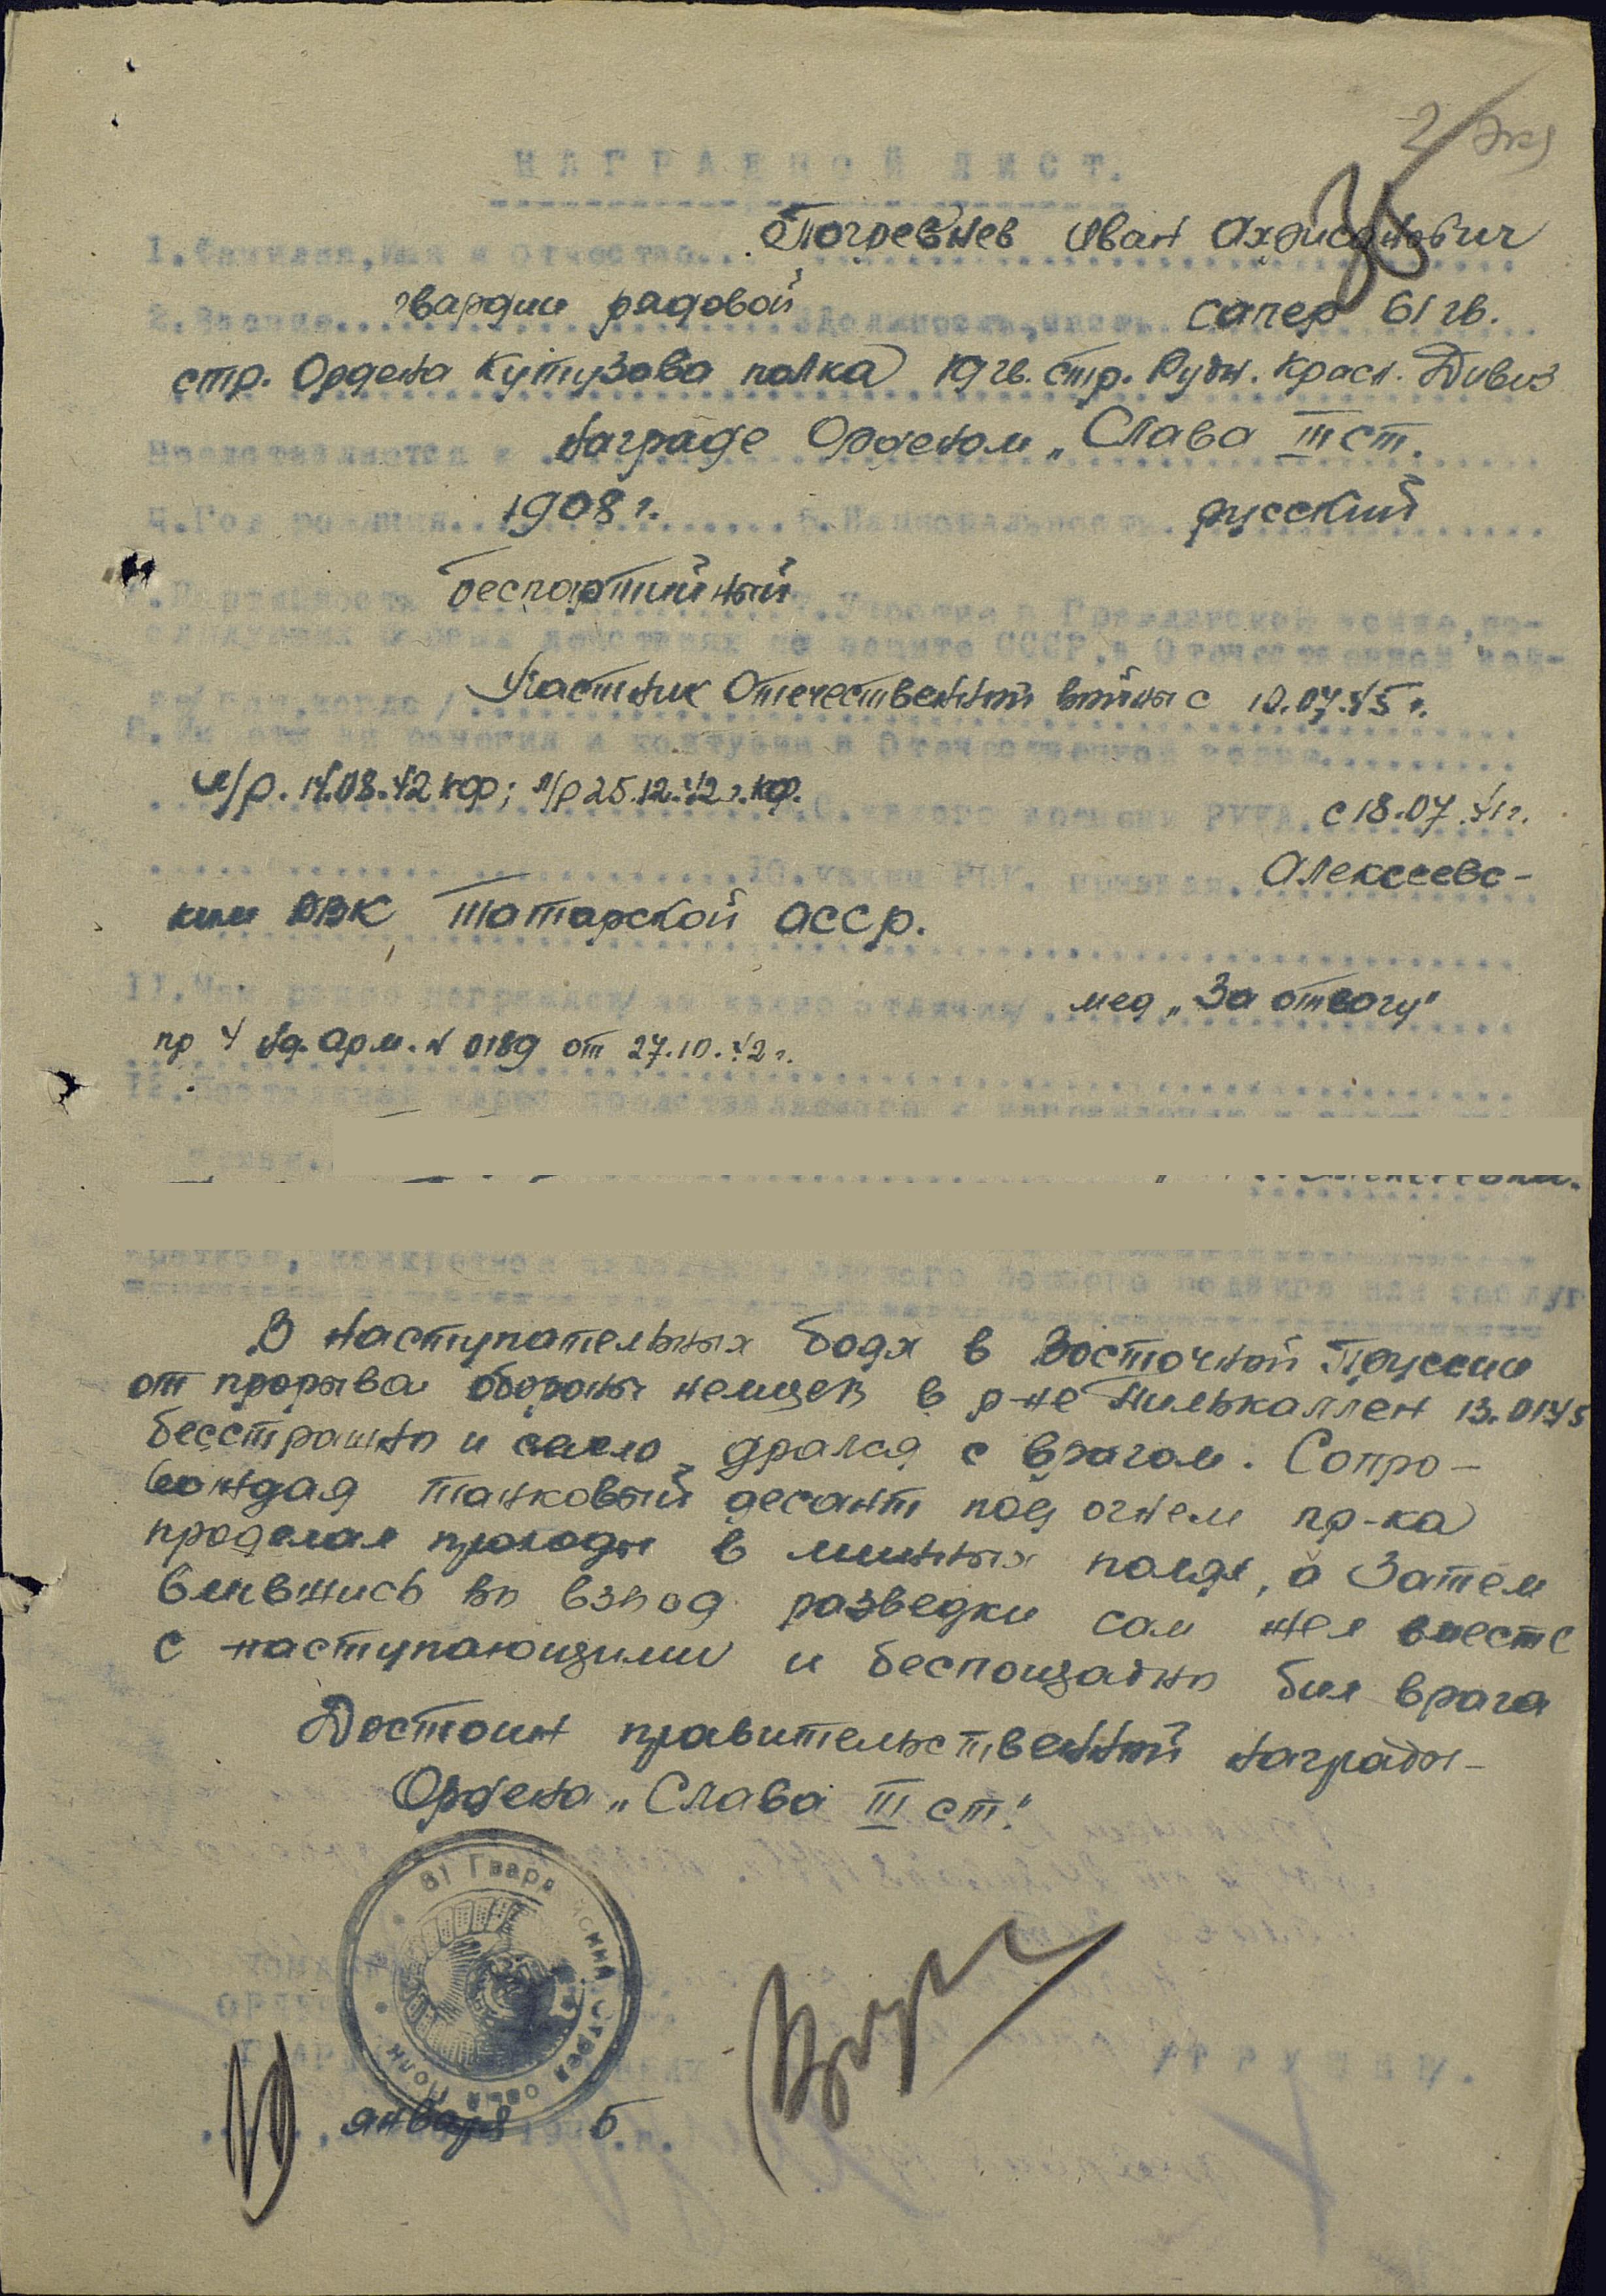 2 экз
НАГРАДНОЙ ЛИСТ.
1. Фамилия, Имя и Отчество... Иван
2. Звание... гвардии рядовой 3. Должность, часть сапер 61 гв.
стр. Ордена Кутузова полка 19 гв. стр. Рудн. Красн. Дивиз
Представляется к награде Орденом „Слава III ст.
4. Год рождения... 1908 г. 5. Национальность русский
6. Партийность беспартийный 7. Участие в Гражданской войне, по-
следующих боевых действиях по защите СССР, в Отечественной вой-
не / где, когда / Участник Отечественной войны с
8. Имеет ли ранения и контузии в Отечественной войне
л/р. 14.08.42 кф; л/р 25.12.42 г. кф.
9. С какого времени РККА с 18.07.41 г.
10. каким РВК призван Алексеевс-
ким РВК Татарской АССР.
11. Чем ранее награжден / за какие отличия / мед „За отвагу"
пр 4 Уд. Арм. № 0189 от 27.10.42 г.
12. Постоянный адрес представляемого к награждению и адрес его
семьи.
краткое, конкретное изложение личного боевого подвига или заслуг
В наступательных боях в Восточной Пруссии
от прорыва обороны немцев в р-не Пилькаллен 13.01.45
бесстрашно и смело дрался с врагом. Сопро-
вождая танковый десант под огнем пр-ка
проделал проходы в минных полях, а затем
влившись во взвод разведки сам шел вместе
с наступающими и беспощадно бил врага
Достоин правительственной награды-
Ордена „Слава III ст."
61 Гвардейский Стрелковый Полк
января 1945 г.